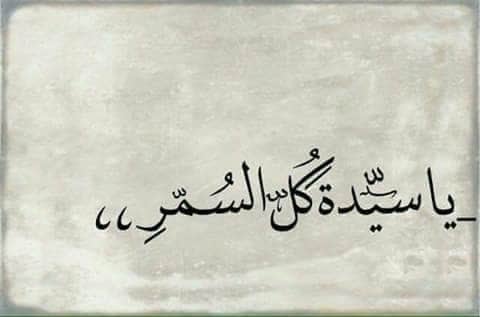 _يا سيّدة كُلّ السُمّرِ ،،